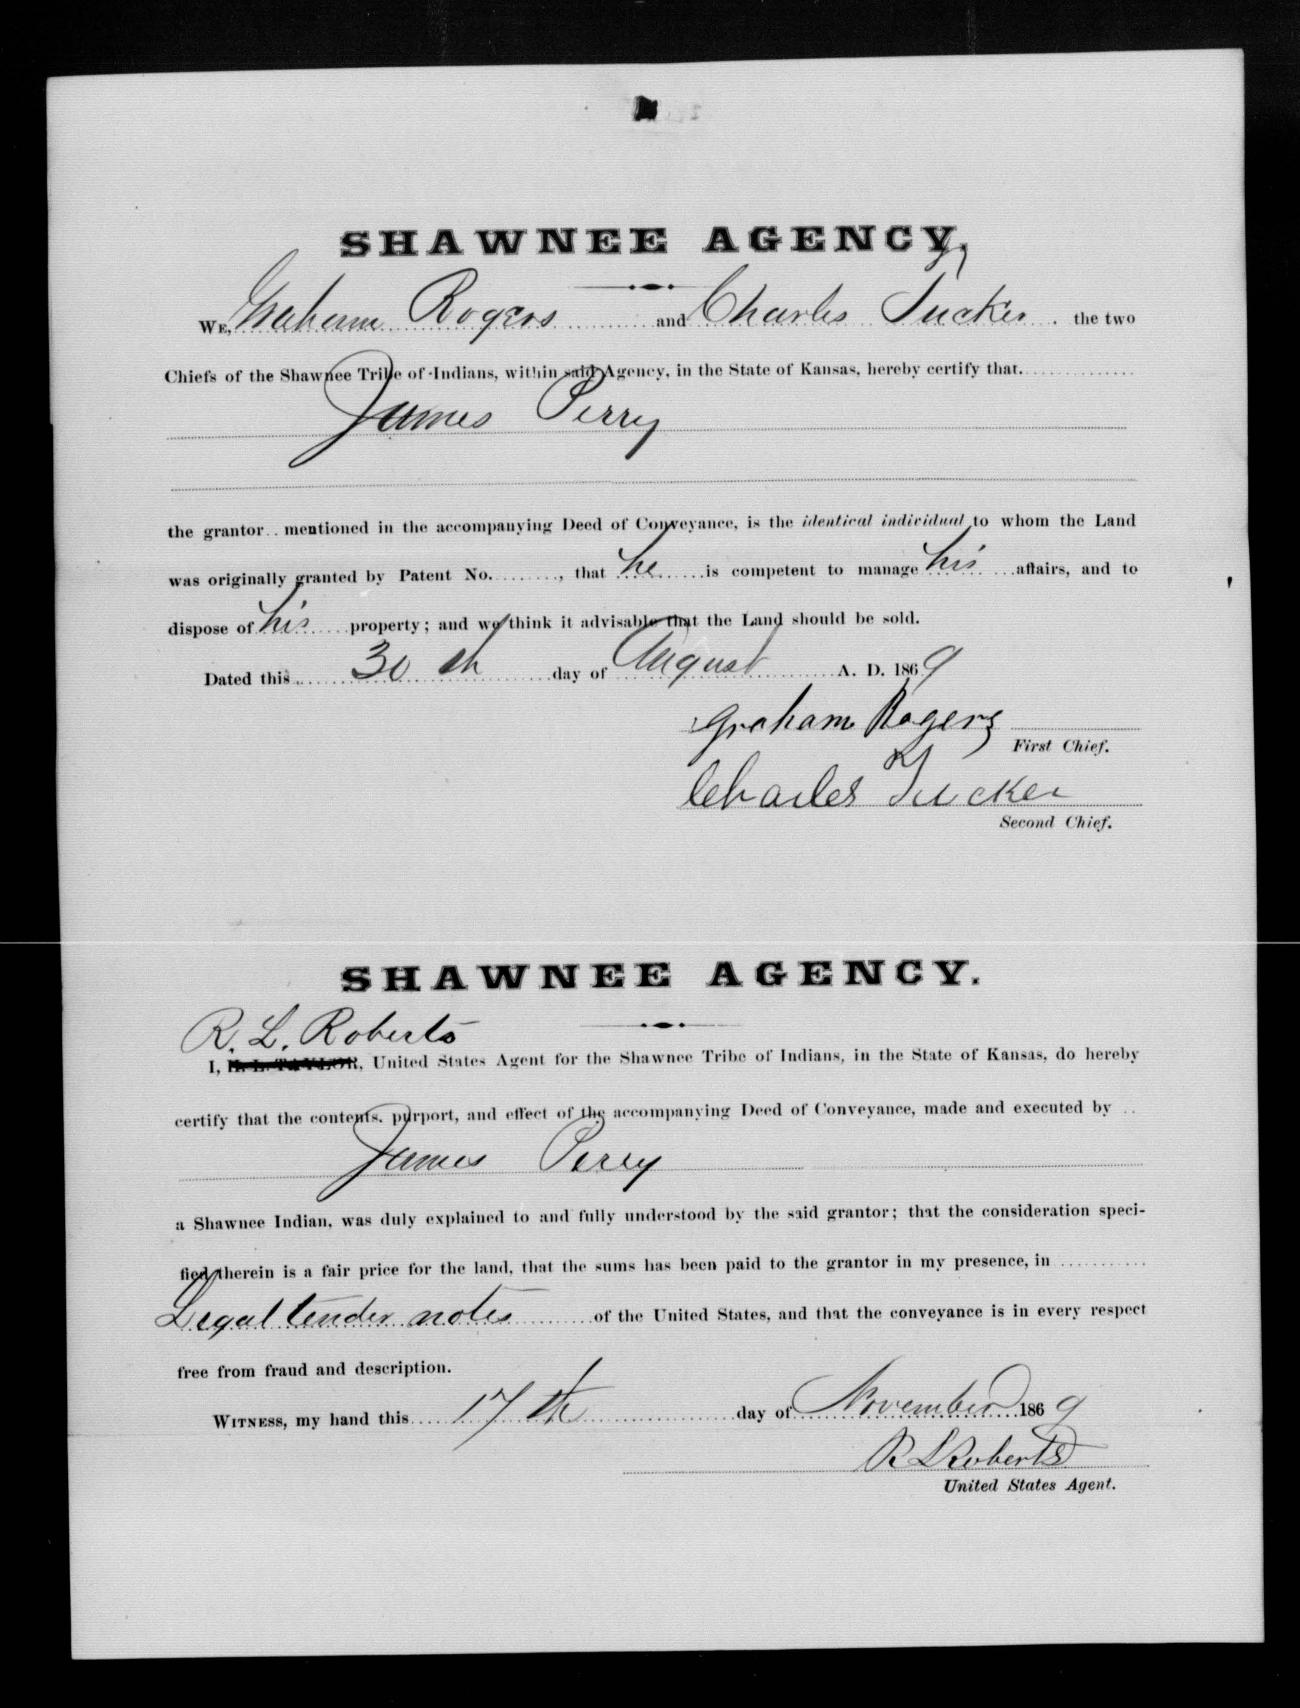 SHAWNEE AGENCY,
WE, Graham Rogers and Charles Tucker the two
Chiefs of the Shawnee Tribe of Indians, within said Agency, in the State of Kansas, hereby certify that
James Perry
the grantor mentioned in the accompanying Deed of Conveyance, is the identical individual to whom the Land
was originally granted by Patent No. ........, that he is competent to manage his affairs, and to
dispose of his property; and we think it advisable that the Land should be sold.
Dated this 30th day of August A. D. 1869
Graham Rogers
First Chief.
Charles Tucker
Second Chief.
SHAWNEE AGENCY.
R. L. Roberts
I, H. L. TAYLOR, United States Agent for the Shawnee Tribe of Indians, in the State of Kansas, do hereby
certify that the contents, purport, and effect of the accompanying Deed of Conveyance, made and executed by
James Perry
a Shawnee Indian, was duly explained to and fully understood by the said grantor; that the consideration speci-
fied therein is a fair price for the land, that the sums has been paid to the grantor in my presence, in
Legal tender notes of the United States, and that the conveyance is in every respect
free from fraud and description.
WITNESS, my hand this 17th day of November 1869
R L Roberts
United States Agent.